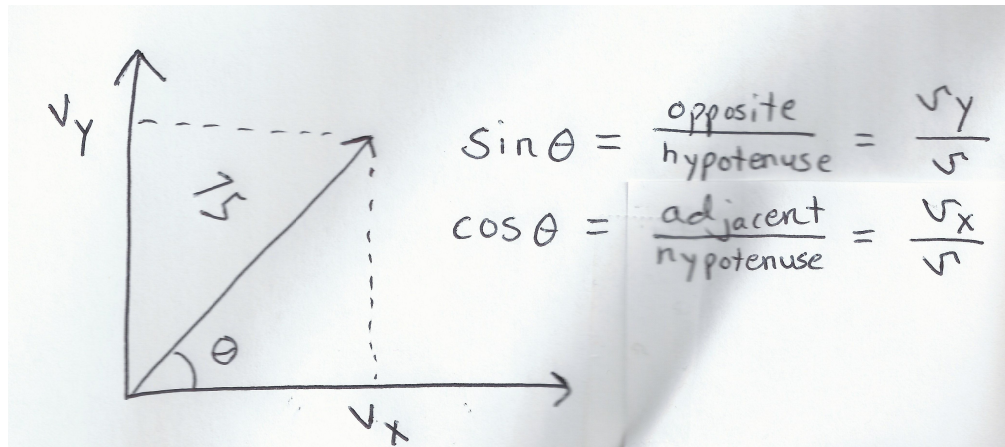 v_y
v⃗
θ
v_x
sin θ = opposite/hypotenuse = v_y/v
cos θ = adjacent/hypotenuse = v_x/v